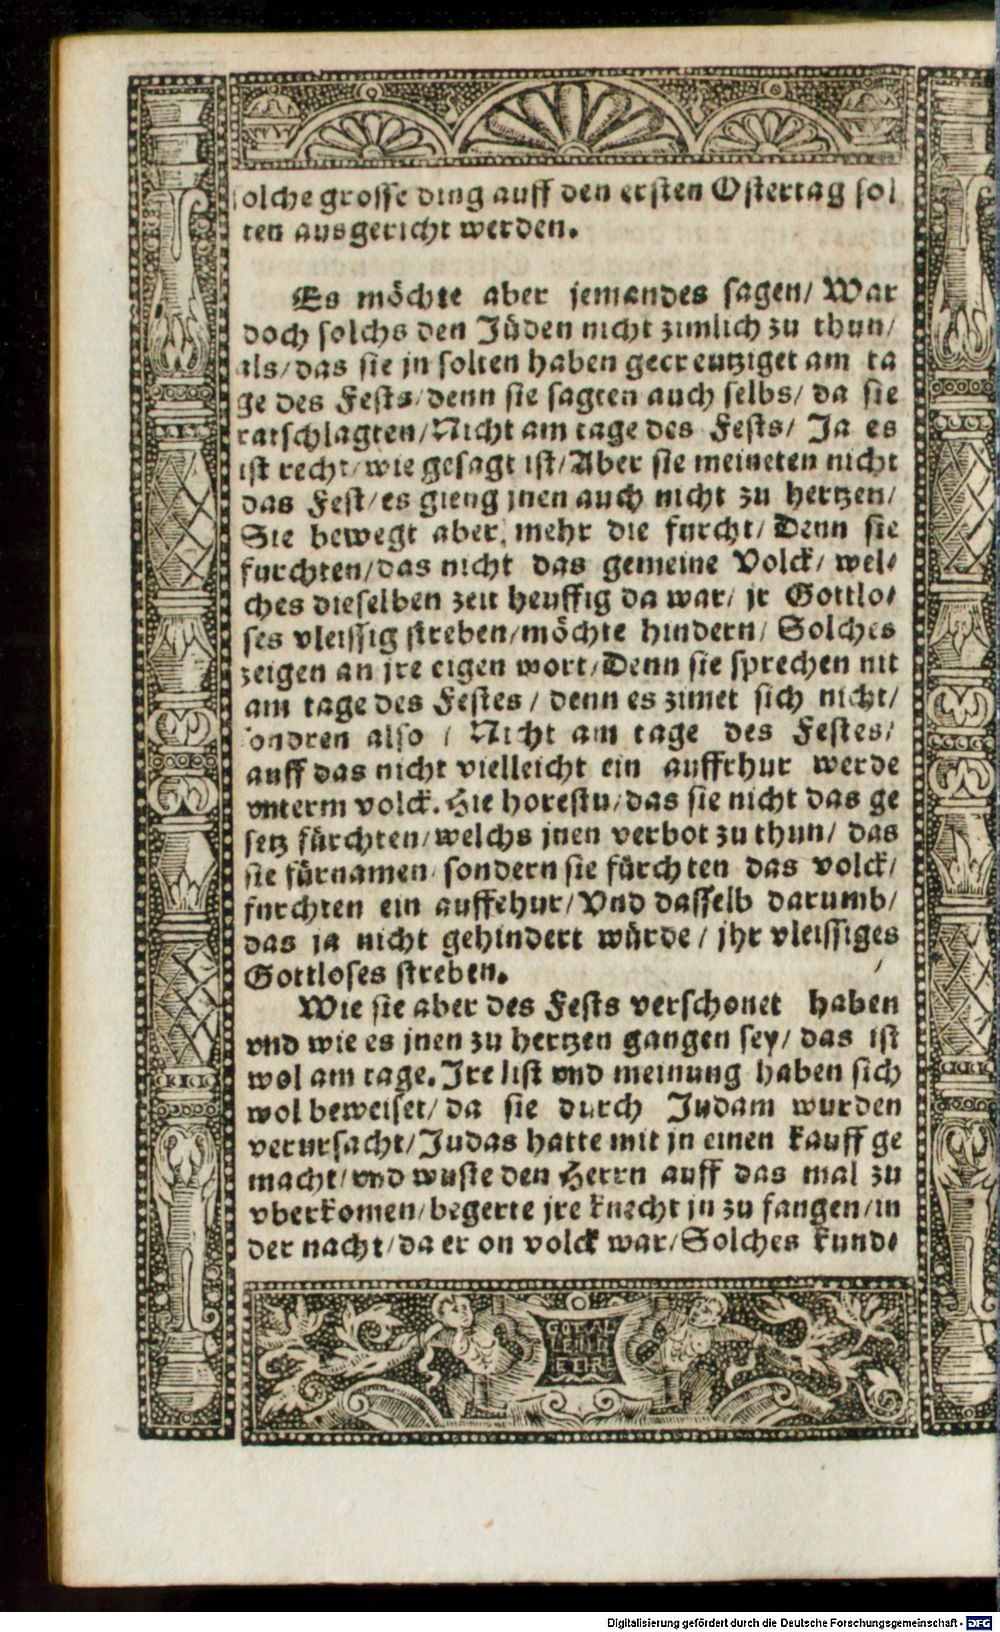 solche grosse ding auff den ersten Ostertag sol
ten ausgericht werden.
Es möchte aber jemandes sagen/ War
doch solchs den Jüden nicht zimlich zu thun/
als/das sie jn solten haben gecreutziget am ta
ge des Fests/denn sie sagten auch selbs/ da sie
ratschlagten/Nicht am tage des Fests/ Ja es
ist recht/wie gesagt ist/Aber sie meineten nicht
das Fest/es gieng jnen auch nicht zu hertzen/
Sie bewegt aber mehr die furcht/ Denn sie
furchten/das nicht das gemeine Volck/ wel⸗
ches dieselben zeit heuffig da war/ jr Gottlo⸗
ses vleissig streben/möchte hindern/ Solches
zeigen an jre eigen wort/Denn sie sprechen nit
am tage des Festes / denn es zimet sich nicht/
sondren also / Nicht am tage des Festes/
auff das nicht vielleicht ein auffrhur werde
vnterm volck. Hie horestu/das sie nicht das ge
setz fürchten/welchs jnen verbot zu thun/ das
sie fürnamen/ sondern sie fürchten das volck/
furchten ein auffehur/Vnd dasselb darumb/
das ja nicht gehindert würde / jhr vleissiges
Gottloses streben.
Wie sie aber des Fests verschonet haben
vnd wie es jnen zu hertzen gangen sey/ das ist
wol am tage. Jre list vnd meinung haben sich
wol beweiset/ da sie durch Judam wurden
verursacht/Judas hatte mit jn einen kauff ge
macht/vnd wuste den Herrn auff das mal zu
vberkomen/begerte jre knecht jn zu fangen/in
der nacht/da er on volck war/Solches kund⸗
Digitalisierung gefördert durch die Deutsche Forschungsgemeinschaft - DFG